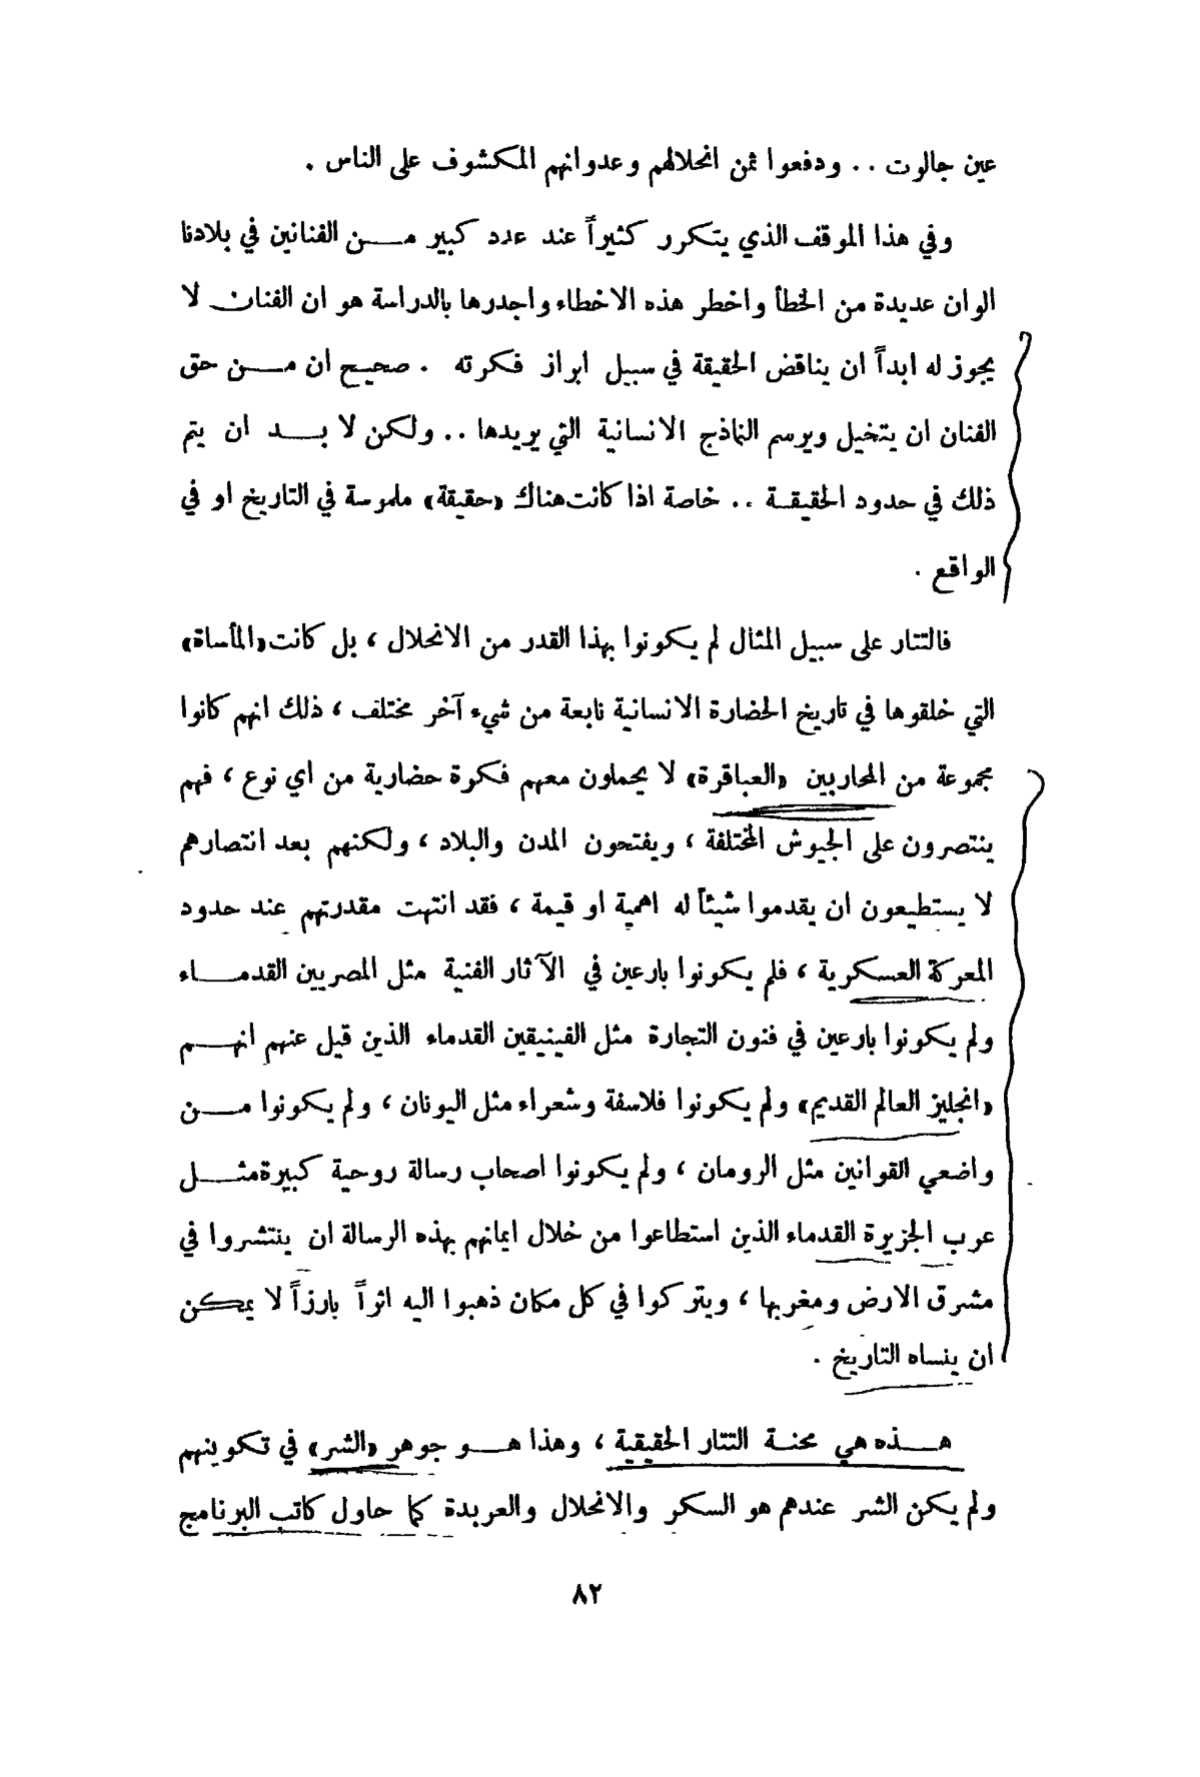 عين جالوت .. ودفعوا ثمن انحلالهم وعدوانهم المكشوف على الناس .
وفي هذا الموقف الذي يتكرر كثيراً عند عدد كبير مـــن الفنانين في بلادنا
الوان عديدة من الخطأ واخطر هذه الاخطاء واجدرها بالدراسة هو ان الفنان لا
يجوز له ابداً ان يناقض الحقيقة في سبيل ابراز فكرته . صحيح ان مـــن حق
الفنان ان يتخيل ويرسم النماذج الانسانية التي يريدها .. ولكن لا بـــد ان يتم
ذلك في حدود الحقيقـة .. خاصة اذا كانت هناك «حقيقة» ملموسة في التاريخ او في
الواقع .
فالتتار على سبيل المثال لم يكونوا بهذا القدر من الانحلال ، بل كانت «المأساة»
التي خلقوها في تاريخ الحضارة الانسانية نابعة من شيء آخر مختلف ، ذلك انهم كانوا
مجموعة من المحاربين «العباقرة» لا يحملون معهم فكرة حضارية من اي نوع ، فهم
ينتصرون على الجيوش المختلفة ، ويفتحون المدن والبلاد ، ولكنهم بعد انتصارهم
لا يستطيعون ان يقدموا شيئاً له اهمية او قيمة ، فقد انتهت مقدرتهم عند حدود
المعركة العسكرية ، فلم يكونوا بارعين في الآثار الفنية مثل المصريين القدمـــاء
ولم يكونوا بارعين في فنون التجارة مثل الفينيقين القدماء الذين قيل عنهم انهـــم
«انجليز العالم القديم» ولم يكونوا فلاسفة وشعراء مثل اليونان ، ولم يكونوا مـــن
واضعي القوانين مثل الرومان ، ولم يكونوا اصحاب رسالة روحية كبيرة مثـــل
عرب الجزيرة القدماء الذين استطاعوا من خلال ايمانهم بهذه الرسالة ان ينتشروا في
مشرق الارض ومغربها ، ويتركوا في كل مكان ذهبوا اليه اثراً بارزاً لا يمكن
ان ينساه التاريخ .
هـــذه هي محنـة التتار الحقيقية ، وهذا هـــو جوهر «الشر» في تكوينهم
ولم يكن الشر عندهم هو السكر والانحلال والعربدة كما حاول كاتب البرنامج
٨٢